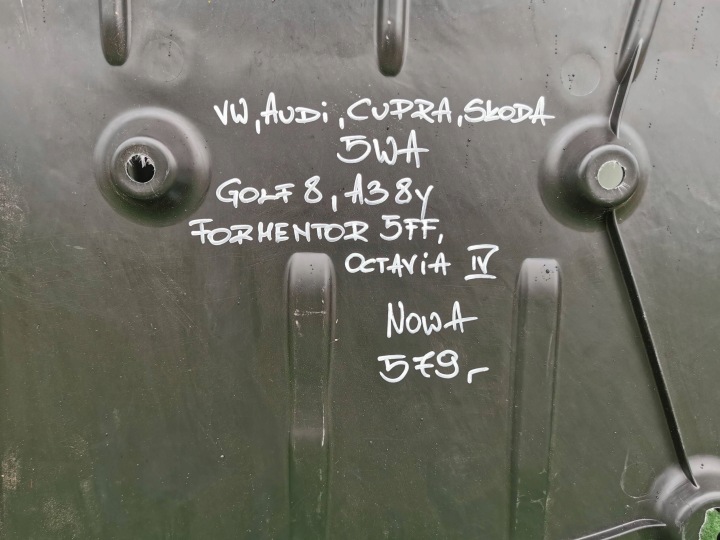 VW, AUDi, CUPRA, SKODA
5WA
GOLF 8, A3 8y
FORMENTOR 5FF,
OCTAViA IV
NOWA
579,-